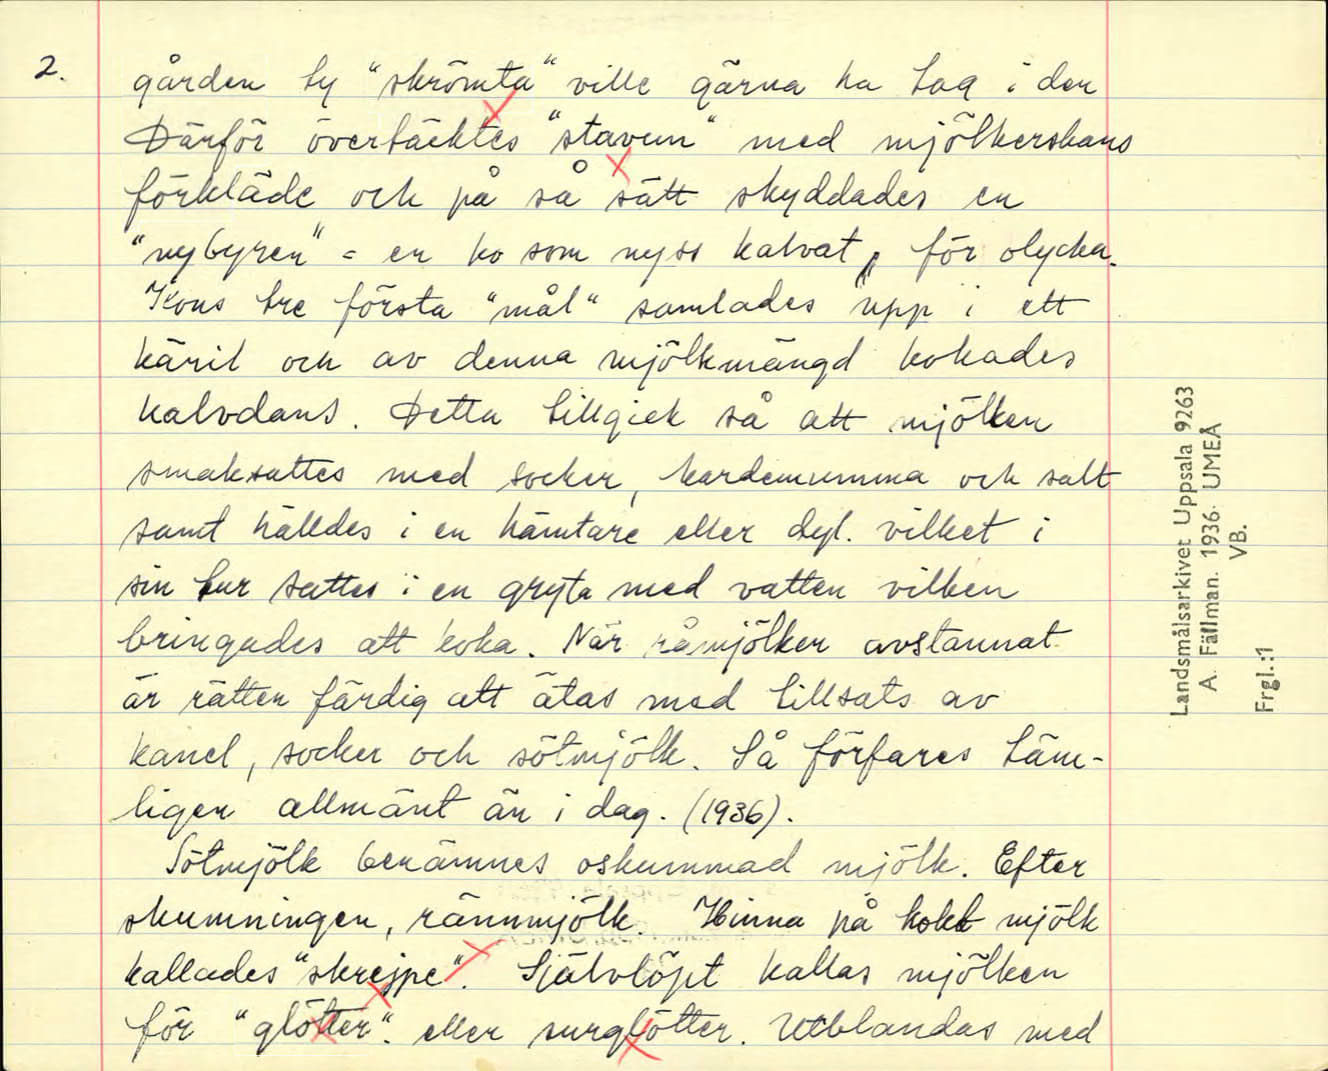 2.
gården ty "skrömta" ville gärna ha tag i den
Därför övertäcktes "stavun" med mjölkerskans
förkläde och på så sätt skyddades en
"nybyren" = en ko som nyss kalvat, för olycka.
Kons tre första "mål" samlades upp i ett
käril och av denna mjölkmängd kokades
kalvdans. Detta tillgick så att mjölken
smaksattes med socker, kardemumma och salt
samt hälldes i en hämtare eller dyl. vilket i
sin tur sattes i en gryta med vatten vilken
bringades att koka. När råmjölken avstannat
är rätten färdig att ätas med tillsats av
kanel, socker och sötmjölk. Så förfares täm-
ligen allmänt än i dag. (1936).
Sötmjölk benämnes oskummad mjölk. Efter
skumningen, rännmjölk. Hinna på kokt mjölk
kallades "skrejpe". Självlöpt kallas mjölken
för "glötter". eller surglötter. Utblandas med
Landsmålsarkivet Uppsala 9263
A. Fällman. 1936. UMEÅ
VB.
Frgl.:1